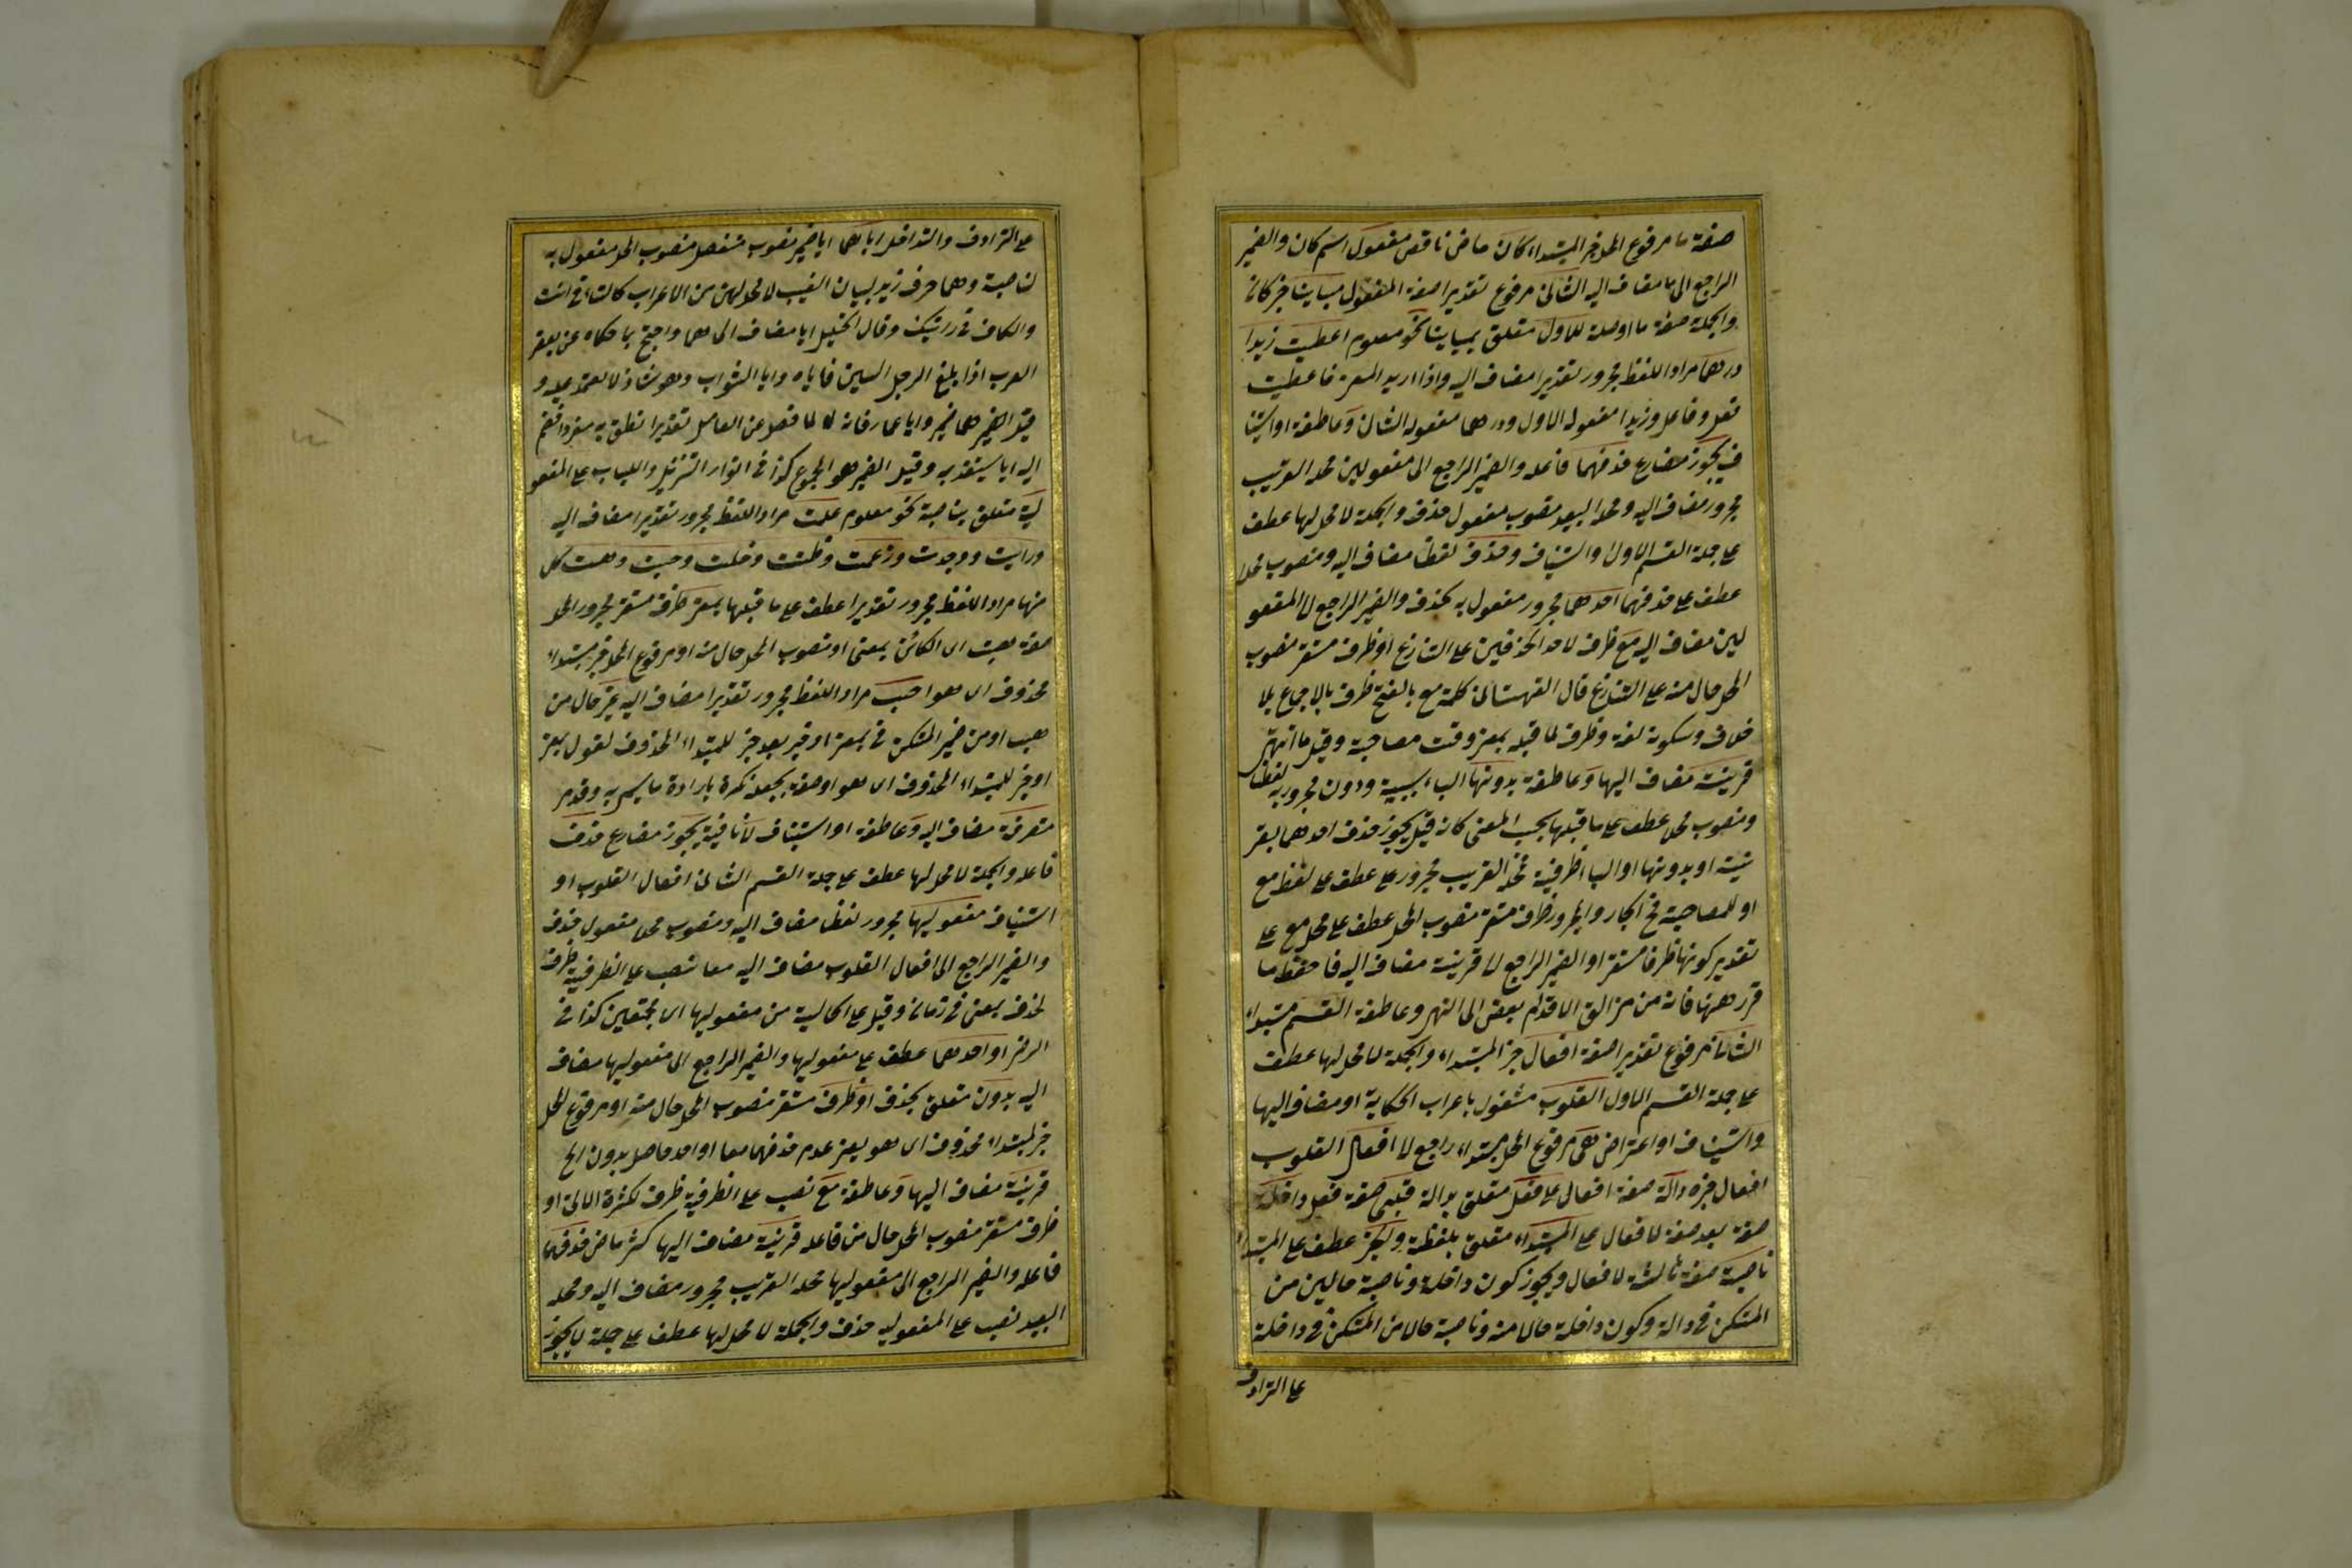 صفة ما مرفوع المحل خبر المبتداء كان ماض ناقص مفعول اسم كان والضمير
الراجع الى ما مضاف اليه الثانى مرفوع تقديرا صفة المفعول مباينا خبر كان
والجملة صفة ما او صلة للاول متعلق بمباينا نحو معلوم اعطيت زيدا
درهما مراد اللفظ مجرور تقديرا مضاف اليه واذا اريد المعنى فاعطيت
فعل وفاعل وزيدا مفعوله الاول ودرهما مفعوله الثانى وعاطفة او استينا
ف يجوز مضارع حذفهما فاعله والضمير الراجع الى مفعولين محله القريب
مجرور مضاف اليه ومحله البعيد منصوب مفعول حذف والجملة لا محل لها عطف
على جملة القسم الاول او استيناف وحذف لفظا مضاف اليه ومنصوب محلا
عطف على حذفهما احدهما مجرور مفعول به لحذف والضمير الراجع الى المفعو
لين مضاف اليه مع ظرف لاحد الحذفين على التنازع او ظرف مستقر منصوب
المحل حال منه على التنازع قال القهستانى كلمة مع بالفتح ظرف بالاجماع بلا
خلاف وسكونه لغة وظرف لما قبله بمعنى وقت مصاحبة وقيل
قرينة مضاف اليها وعاطفة بدونها الباء سببية ودون مجرور به لفظا
ومنصوب محلا عطف على ما قبلها بحسب المعنى كانه قيل يجوز حذف احدهما بقر
ينة او بدونها او الباء ظرفية فمحله القريب مجرور على عطف على لفظ مع
او للمصاحبة فمع الجار والمجرور ظرف مستقر منصوب المحل عطف على محل مع على
تقدير كونها ظرفا مستقرا والضمير الراجع الى قرينة مضاف اليه فاحفظ ما
قرر ههنا فانه من مزالق الاقدام بعض الى النهر وعاطفة القسم مبتداء
الثانى مرفوع تقديرا صفة افعال خبر المبتداء والجملة لا محل لها عطف
على جملة القسم الاول القلوب مشغول باعراب الحكاية او مضاف اليها
واستيناف او اعتراض هى مرفوع المحل مبتداء راجع الى افعال القلوب
افعال خبره دالة صفة افعال على فعل متعلق بدالة قلبى صفة فعل داخلة
صفة بعد صفة لافعال على المبتداء متعلق بلفظة والخبر عطف على المبتداء
ناصبة صفة ثالثة لافعال ويجوز كون داخلة وناصبة حالين من
المستكن فى دالة وكون داخلة حالا منه وناصبة حالا من المستكن فى داخلة
على الترادف
على الترادف والتداخل اياهما ايا ضمير منصوب منفصل منصوب المحل مفعول به
لناصبة وهما حرف زيد لبيان الغيب لا محل لهن من الاعراب كالتاء فى انت
والكاف فى رايتك وقال الخليل ايا مضاف الى هما واحتج بما حكاه عن بعض
العرب اذا بلغ الرجل الستين فاياه وايا الشواب وهو شاذ لا يعتمد عليه و
قيل الضمير هما ضمير وايا عماد فانه لما فصل عن العامل تعذر النطق به مفردا فضم
اليه ايا ليستقل به وقيل الضمير هو المجموع كذا فى انوار التنزيل واللباب على المفعو
لية متعلق بناصبة نحو معلوم علمت مراد اللفظ مجرور تقديرا مضاف اليه
ورايت ووجدت وزعمت وظننت وخلت وحسبت وهب كل
منها مراد اللفظ مجرور تقديرا عطف على ما قبلها بمعنى ظرف مستقر مجرور المحل
صفة هب اى الكائن بمعنى او منصوب المحل حال منه او مرفوع المحل خبر مبتداء
محذوف اى هو احسب مراد اللفظ مجرور تقديرا مضاف اليه غير حال من
هب او من ضمير المستكن فى بمعنى او خبر بعد خبر للمبتداء المحذوف لقوله بمعنى
او خبر للمبتداء المحذوف اى هو او صفة بجعله نكرة بارادة ما يسمى به وقدم
متصرف مضاف اليه وعاطفة او استيناف لا نافية يجوز مضارع حذف
فاعله والجملة لا محل لها عطف على جملة القسم الثانى افعال القلوب او
استيناف مفعوليها مجرور لفظا مضاف اليه ومنصوب محلا مفعول حذف
والضمير الراجع الى افعال القلوب مضاف اليه معا نصب على الظرفية ظرف
لحذف بمعنى فى زمان وقيل على الحالية من مفعوليها اى مجتمعين كذا فى
الرمز او احدهما عطف على مفعوليها والضمير الراجع الى مفعوليها مضاف
اليه بدون متعلق بحذف او ظرف مستقر منصوب المحل حال منه او مرفوع المحل
خبر لمبتداء محذوف اى هو يعنى عدم حذفهما معا او احد حاصل بدون الخ
قرينة مضاف اليها وعاطفة مع نصب على الظرفية ظرف لكثرة الاتى او
ظرف مستقر منصوب المحل حال من فاعله قرينة مضاف اليها كثر ماض حذفهما
فاعله والضمير الراجع الى مفعوليها محله القريب مجرور مضاف اليه ومحله
البعيد نصب على المفعولية حذف والجملة لا محل لها عطف على جملة لا يجوز